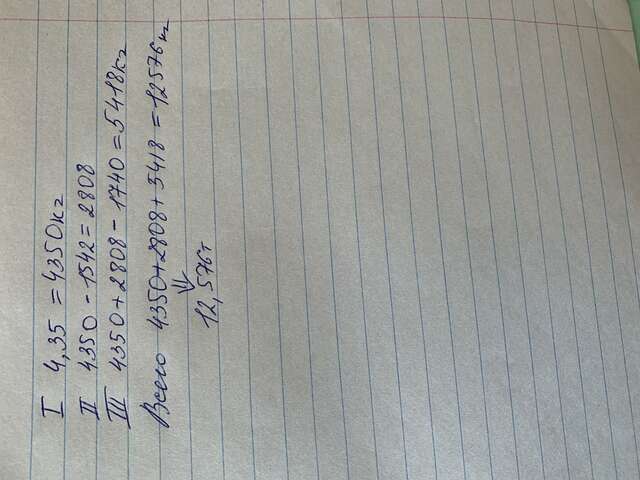 I 4,35 = 4350кг
II 4350 - 1542 = 2808
III 4350 + 2808 - 1740 = 5418кг
Всего 4350+2808+5418 = 12576кг
⇓
12,576т